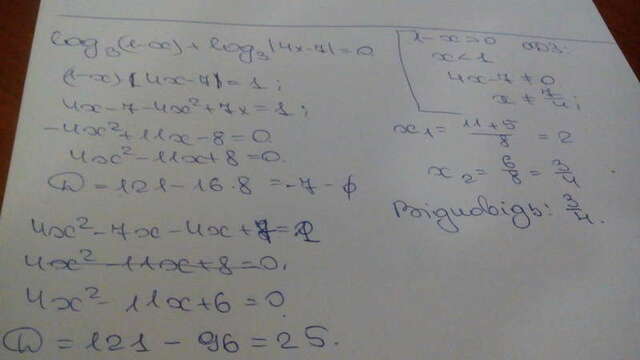 log₃(1-x) + log₃|4x-7| = 0
(1-x)|4x-7| = 1;
4x-7-4x²+7x=1;
-4x²+11x-8=0
4x²-11x+8=0.
D = 121-16·8 = -7 - ∅
4x²-7x-4x+7=1
4x²-11x+8=0.
4x²-11x+6=0
D = 121-96=25.
1-x>0 ОДЗ:
x<1
4x-7≠0
x≠7/4;
x₁=(11+5)/8=2
x₂=6/8=3/4
Відповідь: 3/4.